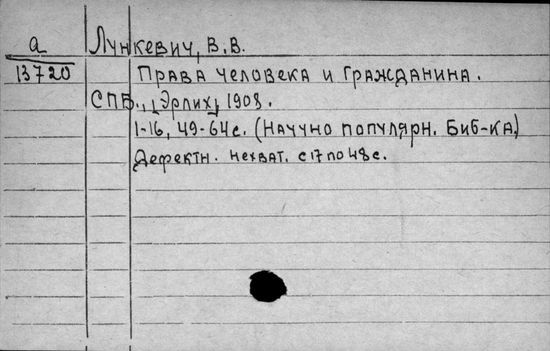 а Лункевич, В.В.
13720 Права человека и гражданина.
СПБ., [Эрлих], 1903.
1-16, 49-64с. (Научно популярн. Биб-ка.)
Дефектн. нехват. с 17 по 48 с.